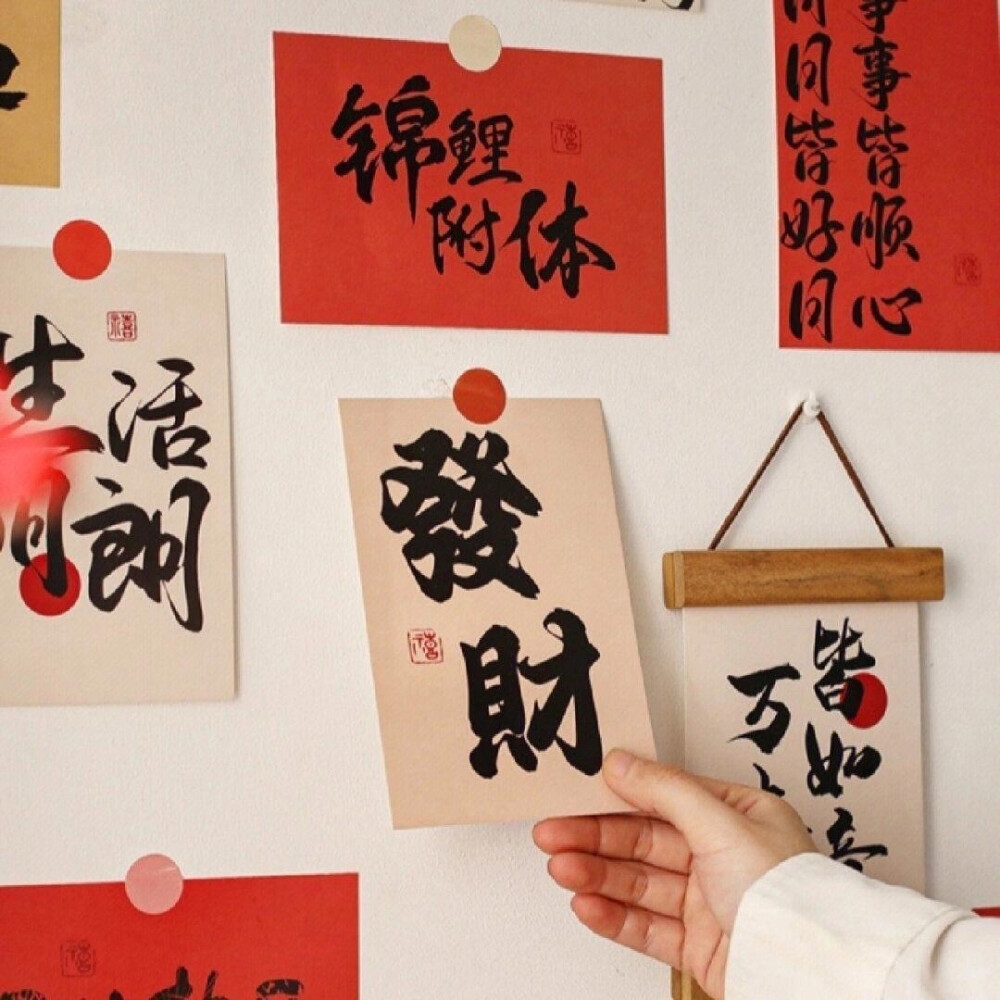 锦鲤
附体
禧
事事皆顺心
日日皆好日
生活
明朗
禧
發
財
禧
万
皆如意